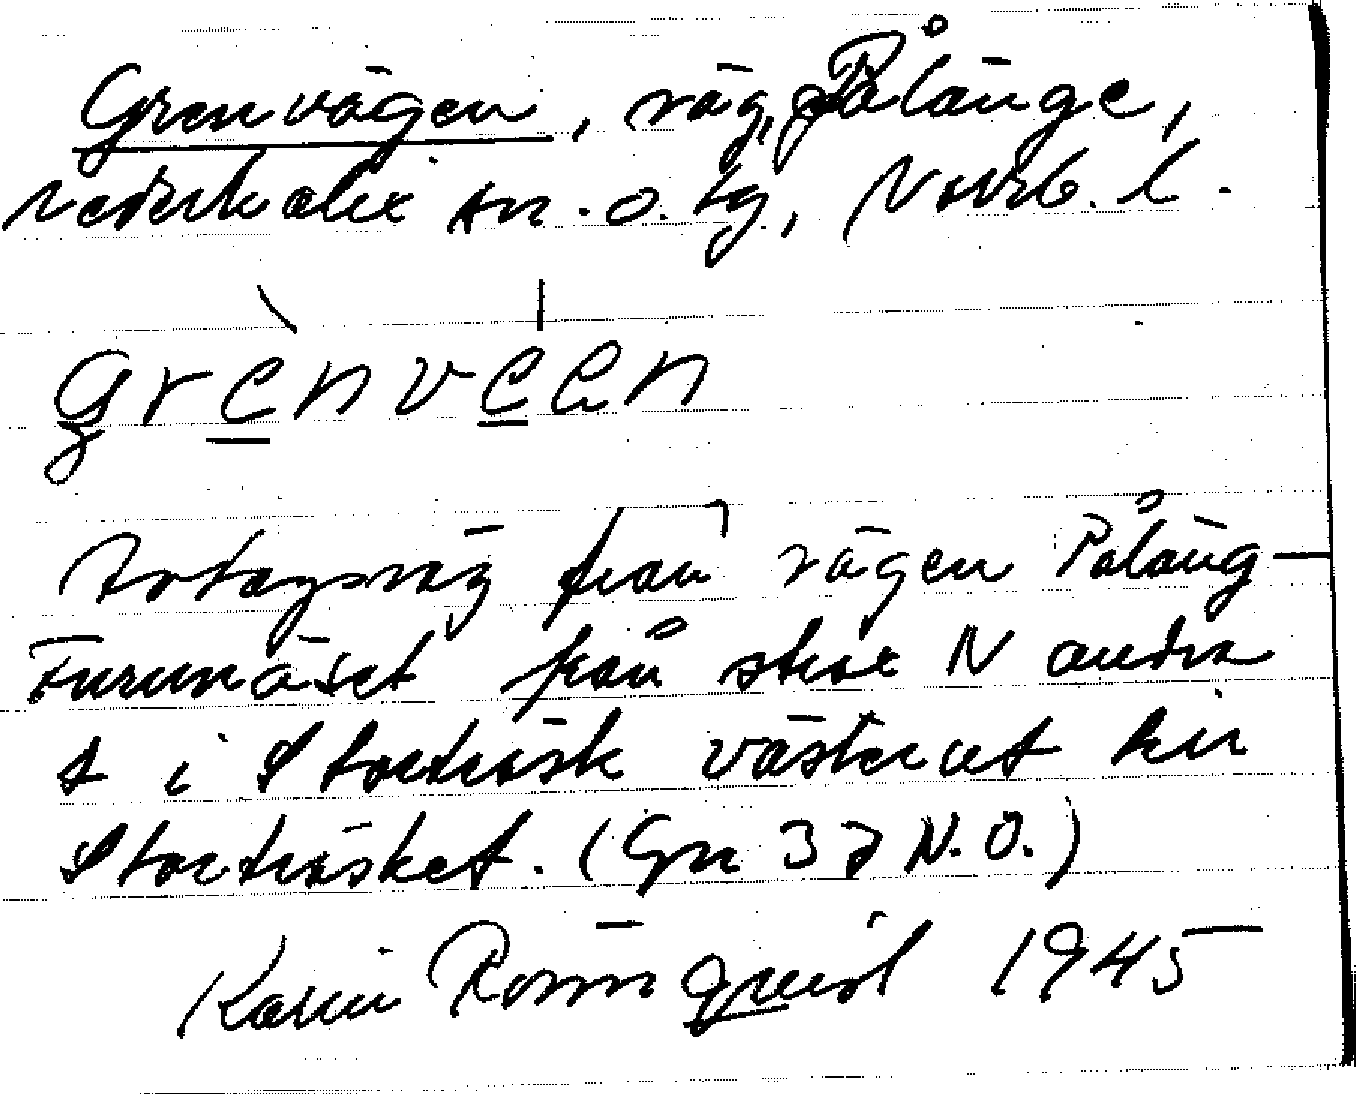 Grenvägen, väg, Pålänge,
Nederkalix sn. o. tg, Norrb. l.
grenveen
Avtagsväg från vägen Påläng-
Furunäset från strax N andra
t i Storträsk västerut till
Storträsket. (Gn 37 N.O.)
Karin Rönnquist 1945